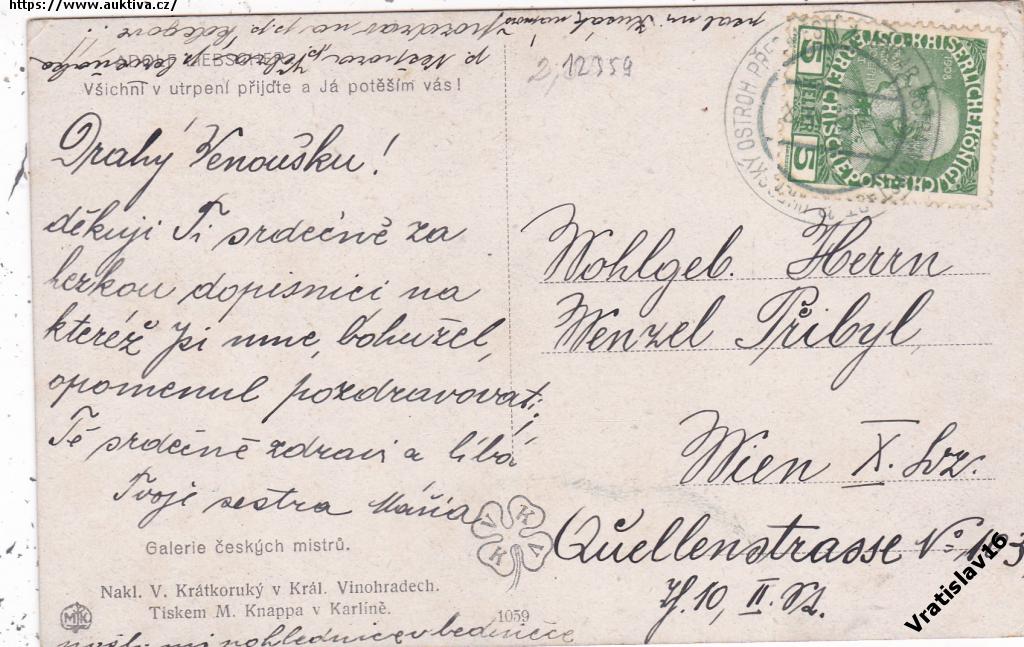 https://www.auktiva.cz/
ADOLF LIEBSCHER:
Všichni v utrpení přijďte a Já potěším vás!
2, 12359
Drahý Venoušku!
děkuji Ti srdečně za
hezkou dopisnici na
kteréž Jsi mne, bohužel,
opomenul pozdravovati!
Tě srdečně zdraví a líbá
Tvoje sestra Máňa
Galerie českých mistrů.
Nakl. V. Krátkoruký v Král. Vinohradech.
Tiskem M. Knappa v Karlíně.
MK
1059
V K K V
pohlednice v bedničce
Wohlgeb. Herrn
Wenzel Přibyl,
Wien X. Bz.
Quellenstrasse No
10, II. St.
5 HELLER 5
1908
UHERSKÝ OSTROH
Vratislav16